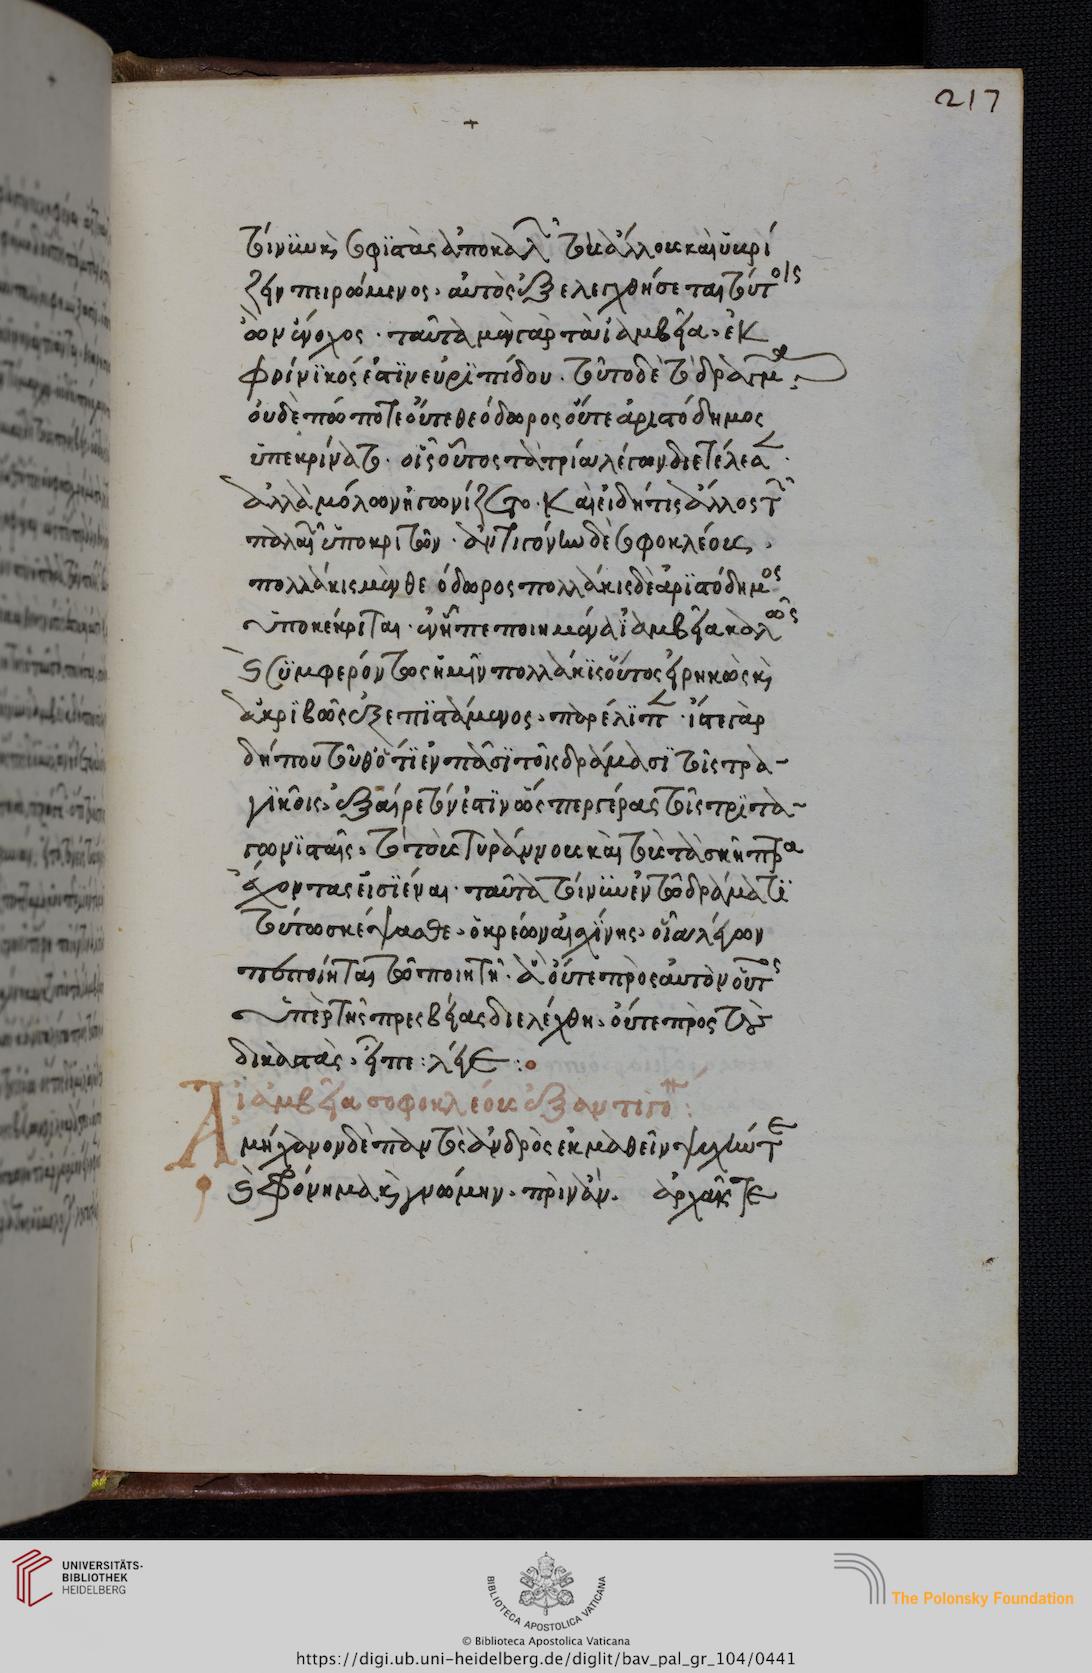 217
τοίνυν καὶ σοφιστὰς ἀποκαλῶν τοὺς ἄλλους καὶ ὑβρί
ζειν πειρώμενος, αὐτὸς ἐξελεγχθήσεται τούτοις
ὢν ἔνοχος· ταῦτα μὲν γὰρ τὰ ἰαμβεῖα, ἐκ
φοίνικός ἐστιν εὐριπίδου· τοῦτο δὲ τὸ δρᾶμα
οὐδὲ πώποτε οὔτε θεόδωρος οὔτε ἀριστόδημος
ὑπεκρίνατο· οἷς οὗτος τὰ τρία λέγων διετέλεσεν·
ἀλλὰ μόλων ἠγωνίζετο· καὶ εἰ δή τις ἄλλος τῶν
παλαιῶν ὑποκριτῶν· ἀντιγόνην δὲ σοφοκλέους,
πολλάκις μὲν θεόδωρος πολλάκις δὲ ἀριστόδημος
ὑποκέκριται· ἐν ᾗ πεποιημένα ἰαμβεῖα καλῶς
καὶ συμφερόντως ἡμῖν πολλάκις οὗτος εἰρηκὼς καὶ
ἀκριβῶς ἐξεπιστάμενος, παρέλιπεν· ἴστε γὰρ
δήπου τοῦθ' ὅτι ἐν πᾶσι τοῖς δράμασι τοῖς τρα-
γικοῖς, ἐξαίρετόν ἐστιν ὥσπερ γέρας τοῖς τριτα-
γωνισταῖς, τὸ τοὺς τυράννους καὶ τοὺς τὰ σκῆπτρα
ἔχοντας εἰσιέναι· ταῦτα τοίνυν ἐν τῷ δράματι
τούτῳ σκέψασθε, ὁ κρέων αἰσχίνης, οἷα λέγων
πεποίηται τῷ ποιητῇ· ἃ οὔτε πρὸς αὐτὸν οὗτος
ὑπὲρ τῆς πρεσβείας διελέχθη, οὔτε πρὸς τοὺς
δικαστὰς, εἶπε: λέγε:
ἰαμβεῖα σοφοκλέους ἐξ ἀντιγόνης:
Ἀμήχανον δὲ παντὸς ἀνδρὸς ἐκμαθεῖν ψυχήν τε
καὶ φρόνημα καὶ γνώμην, πρὶν ἂν. ἀρχαῖς τε
UNIVERSITÄTS-
BIBLIOTHEK
HEIDELBERG
BIBLIOTECA APOSTOLICA VATICANA
The Polonsky Foundation
© Biblioteca Apostolica Vaticana
https://digi.ub.uni-heidelberg.de/diglit/bav_pal_gr_104/0441